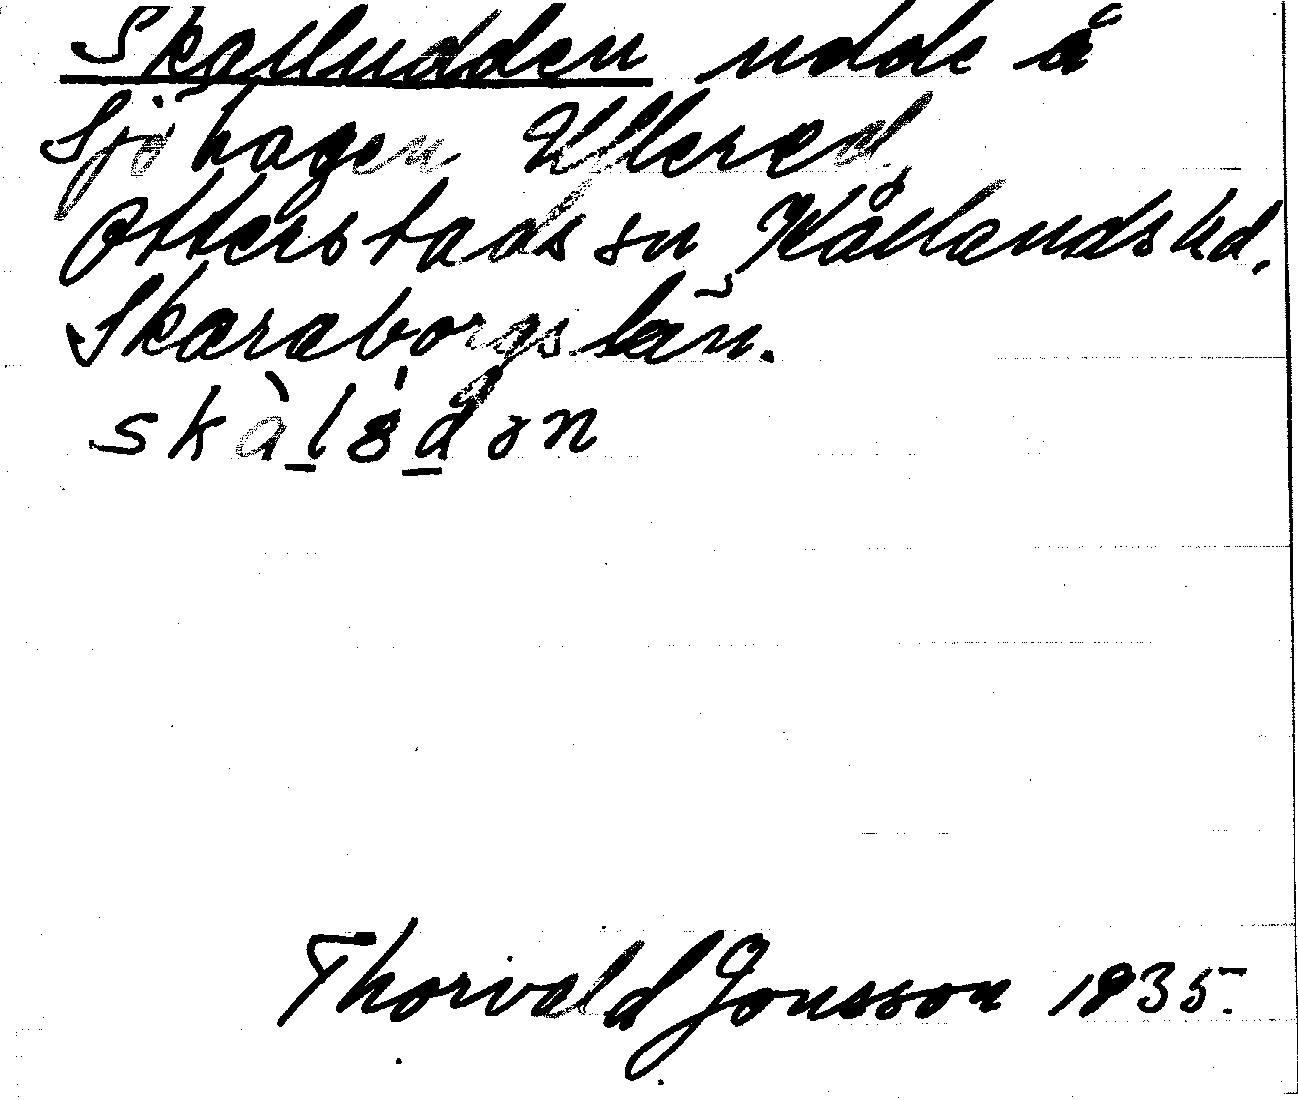 Skalludden udde å
Sjöhagen Ullered,
Otterstads sn Kållands hd.
Skaraborgs län.
skàlɞ́dən
Thorvald Jonsson 1935.